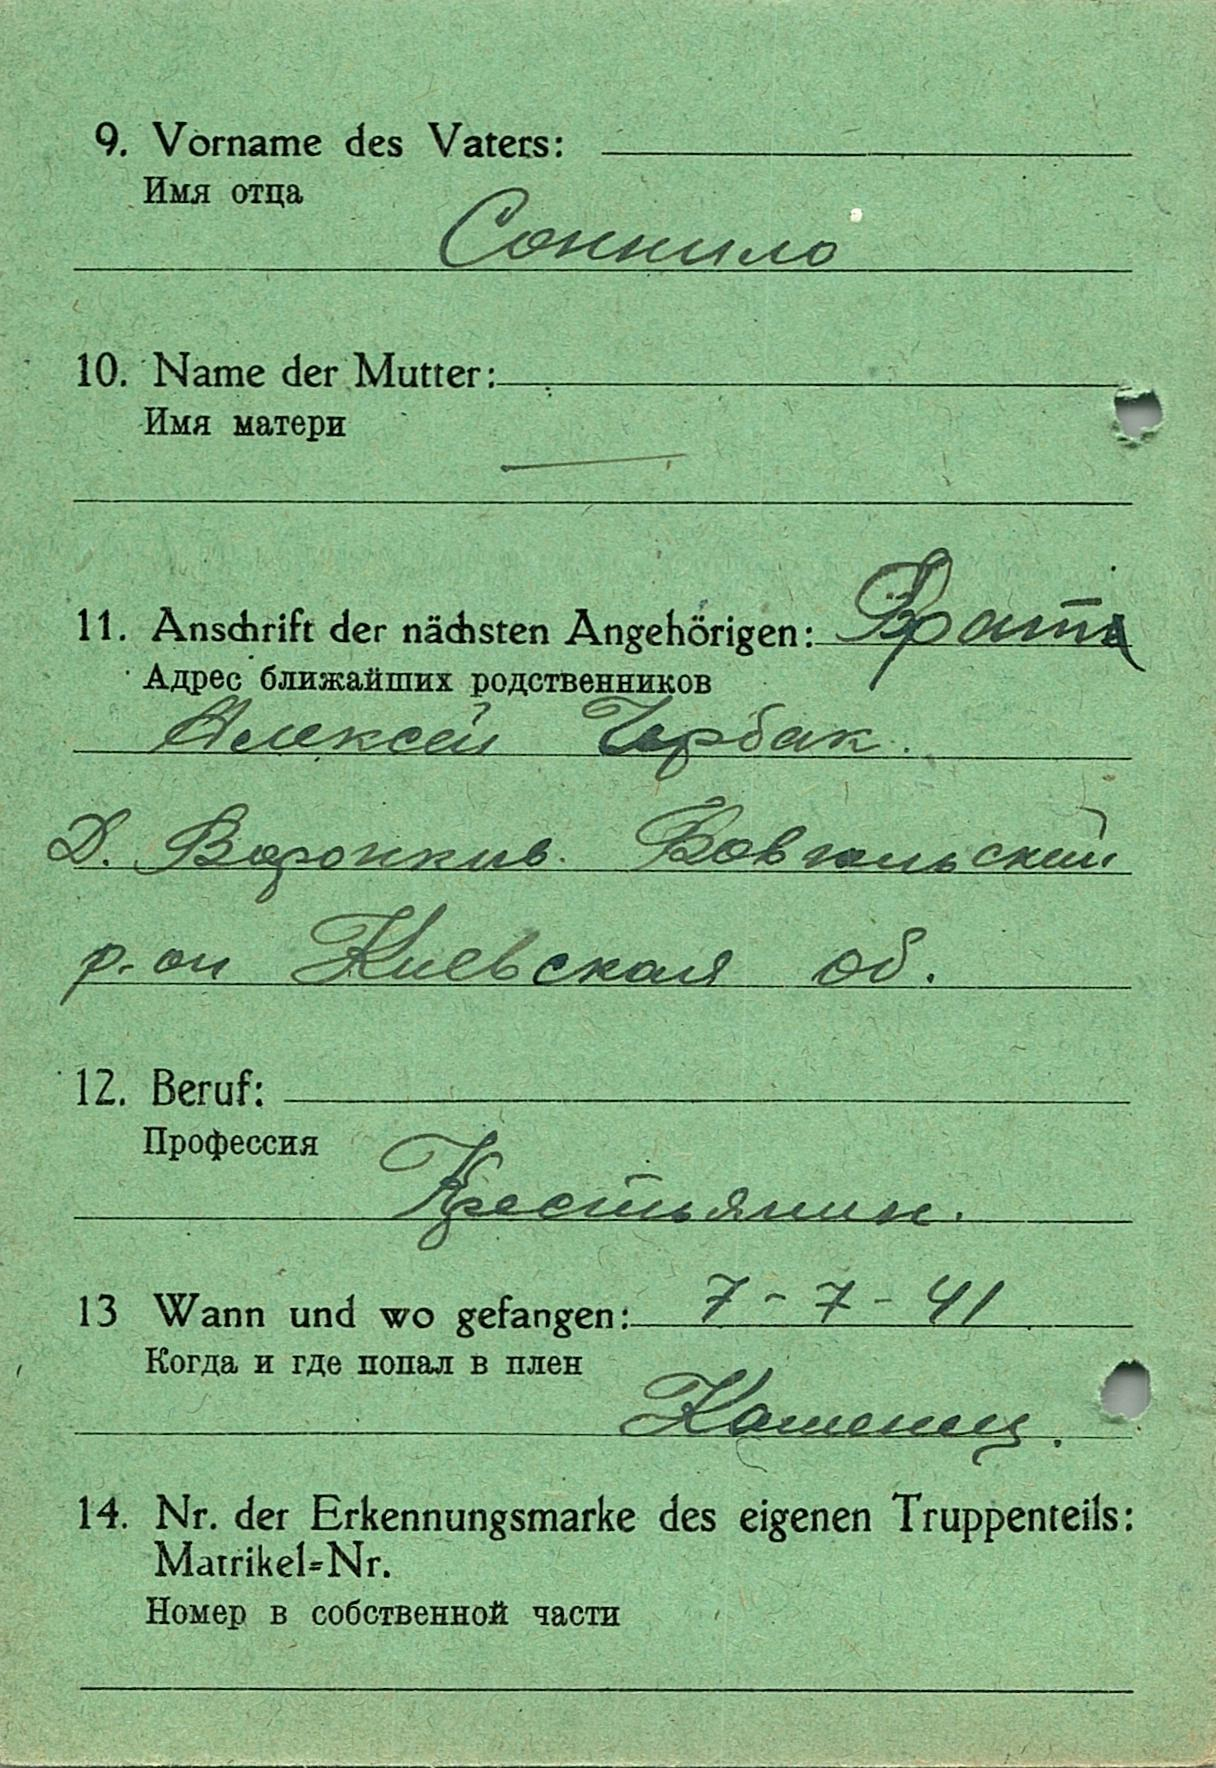 9. Vorname des Vaters:
Имя отца
Соннило
10. Name der Mutter:
Имя матери
—
11. Anschrift der nächsten Angehörigen: Брата
Адрес ближайших родственников
Алексей Щербак.
Д. Воронкив.
р-он Киевская об.
12. Beruf:
Профессия
Крестьянин.
13 Wann und wo gefangen: 7-7-41
Когда и где попал в плен
Каменец.
14. Nr. der Erkennungsmarke des eigenen Truppenteils:
Matrikel=Nr.
Номер в собственной части